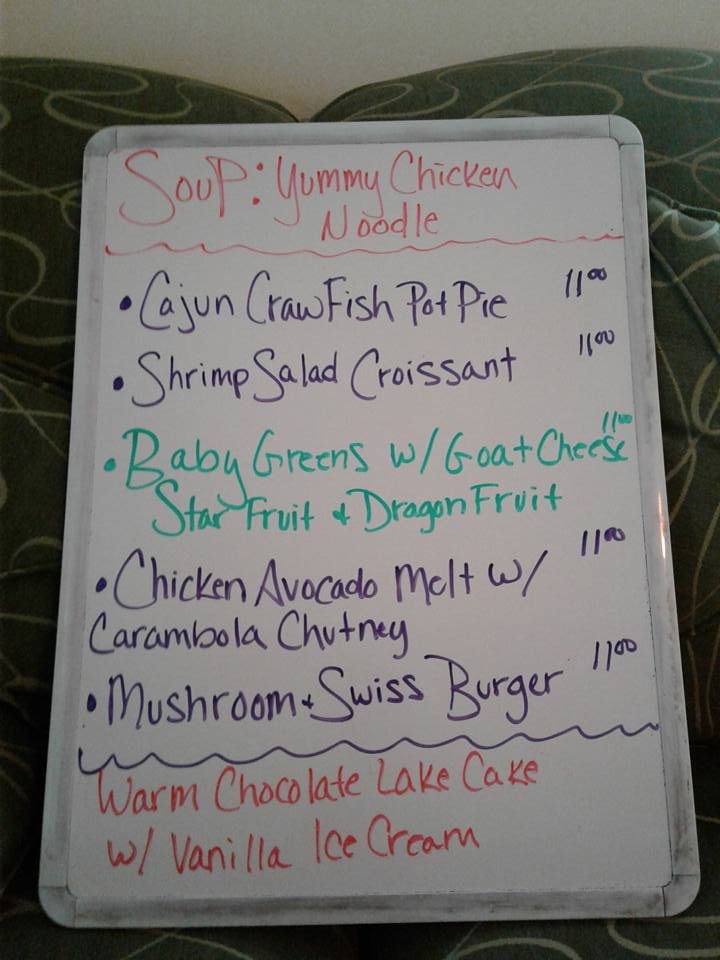 Soup: Yummy Chicken
Noodle
• Cajun CrawFish Pot Pie 11⁰⁰
• Shrimp Salad Croissant 11⁰⁰
• Baby Greens w/ Goat Cheese 11⁰⁰
Star Fruit & Dragon Fruit
• Chicken Avocado Melt w/ 11⁰⁰
Carambola Chutney
• Mushroom & Swiss Burger 11⁰⁰
Warm Chocolate Lake Cake
w/ Vanilla Ice Cream